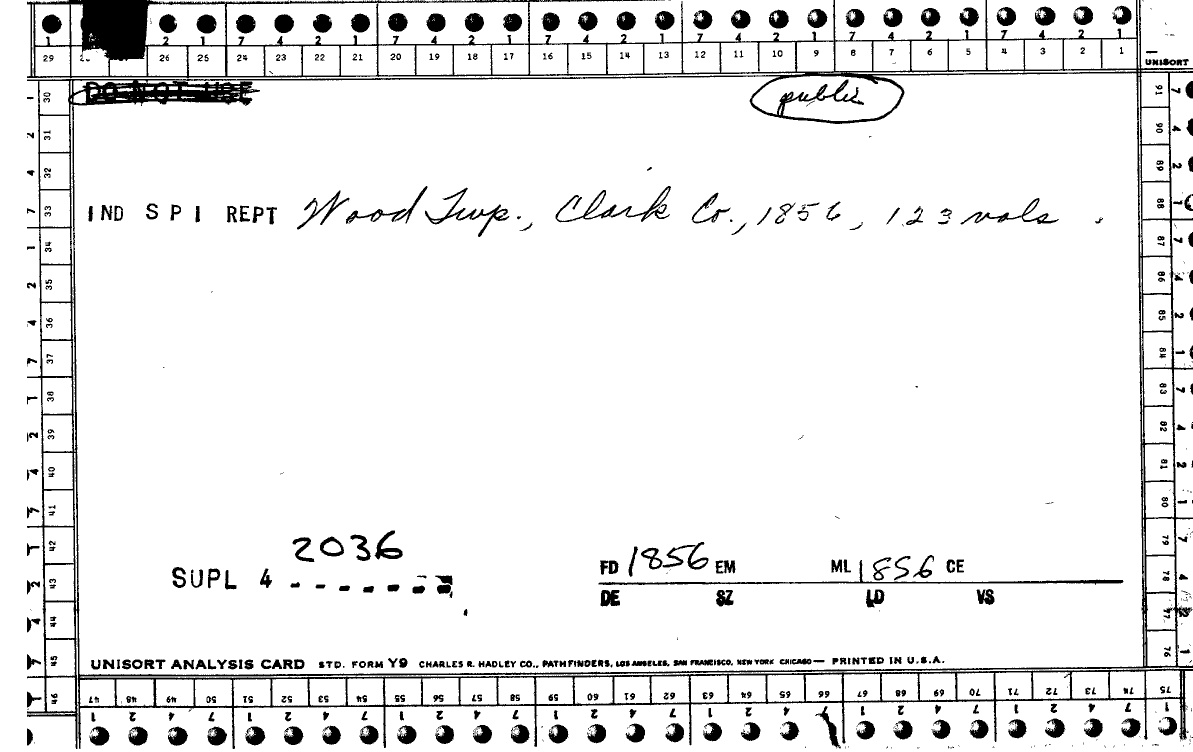 1 2 1 7 4 2 1 7 4 2 1 7 4 2 1 7 4 2 1 7 4 2 1 7 4 2 1
29 26 25 24 23 22 21 20 19 18 17 16 15 14 13 12 11 10 9 8 7 6 5 4 3 2 1
UNISORT
DO NOT USE
public
IND S P I REPT Wood Twp., Clark Co., 1856, 123 vols.
2036
SUPL 4
FD 1856 EM ML 1856 CE
DE SZ LD VS
UNISORT ANALYSIS CARD STD. FORM Y9 CHARLES R. HADLEY CO., PATHFINDERS, LOS ANGELES, SAN FRANCISCO, NEW YORK CHICAGO — PRINTED IN U.S.A.
30 31 32 33 34 35 36 37 38 39 40 41 42 43 44 45 46
91 90 89 88 87 86 85 84 83 82 81 80 79 78 77 76
47 48 49 50 51 52 53 54 55 56 57 58 59 60 61 62 63 64 65 66 67 68 69 70 71 72 73 74 75
1 2 4 7 1 2 4 7 1 2 4 7 1 2 4 7 1 2 4 7 1 2 4 7 1 2 4 7 1